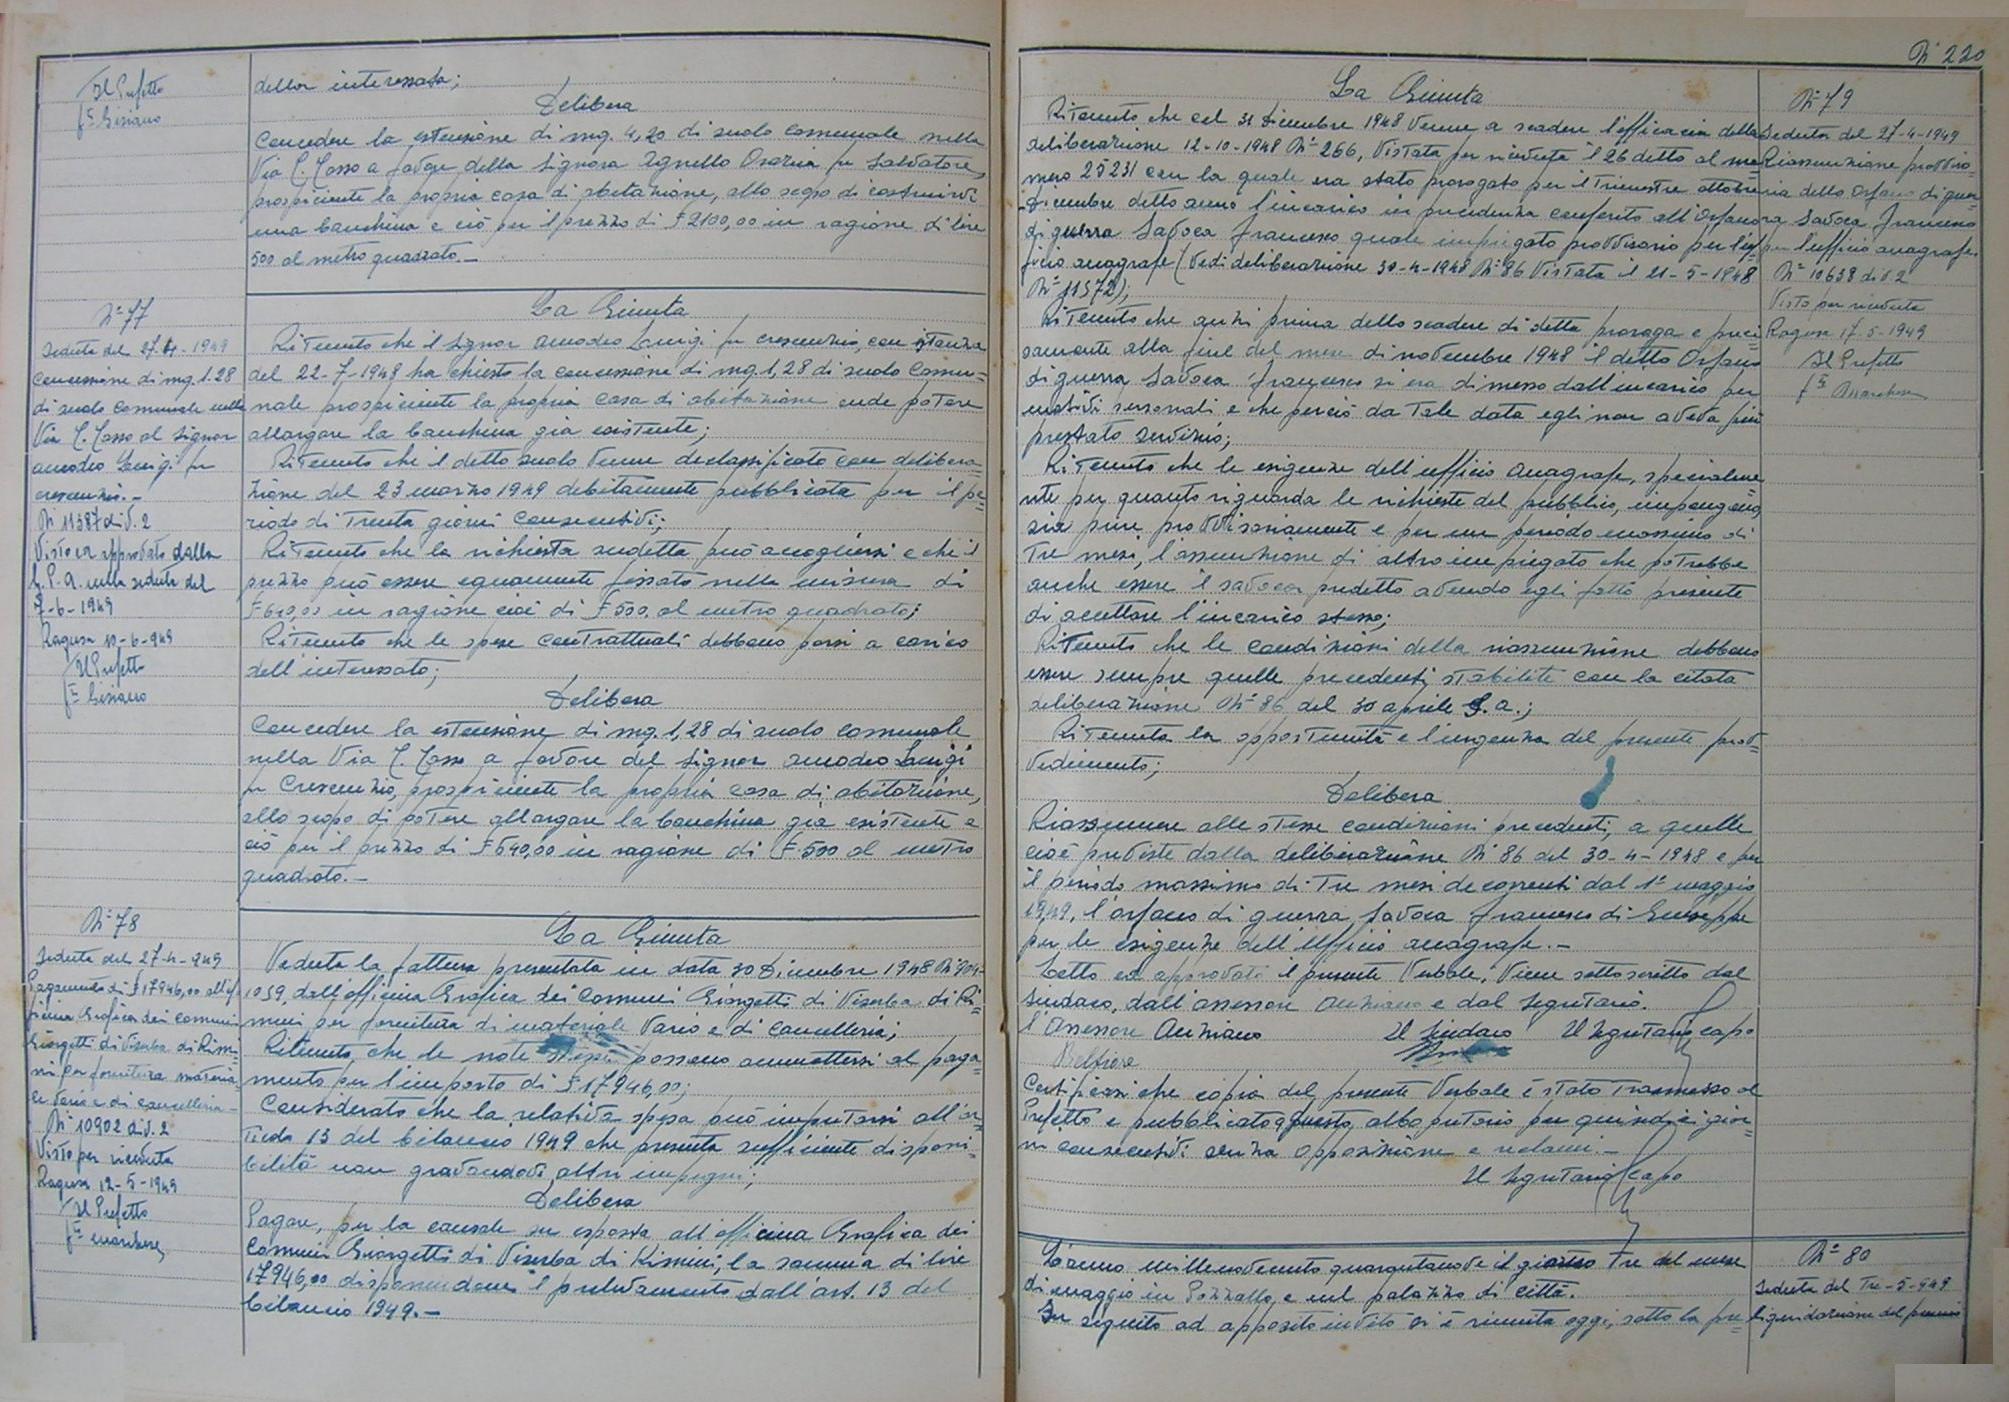 Il Prefetto
f.to Gisiano
della interessata;
Delibera
Concedere la estensione di mq. 4,20 di suolo comunale nella
Via T. Tasso a favore della Signora Agnello Orazia fu Salvatore,
prospiciente la propria casa di abitazione, allo scopo di costruirvi
una banchina e ciò per il prezzo di £ 2100,00 in ragione di lire
500 al metro quadrato.-
N° 77
Seduta del 27-4-1949
Concessione di mq. 1.28
di suolo comunale nella
Via T. Tasso al Signor
Amodeo Luigi fu
Crescenzio.-
N° 11387 div. 2
Vistoca approvato dalla
G. P. A. nella seduta del
7-6-1949
Ragusa 10-6-949
Il Prefetto
f.to Gisiano
La Giunta
Ritenuto che il Signor Amodeo Luigi fu Crescenzio, con istanza
del 22-7-1948 ha chiesto la concessione di mq. 1,28 di suolo comu=
nale prospiciente la propria casa di abitazione onde potere
allargare la banchina già esistente;
Ritenuto che il detto suolo venne declassificato con delibera=
zione del 23 marzo 1949 debitamente pubblicata per il pe=
riodo di trenta giorni consecutivi;
Ritenuto che la richiesta sudetta può accogliersi e che il
prezzo può essere equamente fissato nella misura di
£ 640,00 in ragione cioè di £ 500. al metro quadrato;
Ritenuto che le spese contrattuali debbano porsi a carico
dell'interessato;
Delibera
Concedere la estensione di mq. 1,28 di suolo comunale
nella Via T. Tasso a favore del Signor Amodeo Luigi
fu Crescenzio, prospiciente la propria casa di abitazione,
allo scopo di potere allargare la banchina già esistente e
ciò per il prezzo di £ 640,00 in ragione di £ 500 al metro
quadrato.-
N° 78
Seduta del 27-4-949
Pagamento di £ 17946,00 all'of=
ficina Grafica dei Comuni
Giorgetti di Viserba di Rimi=
ni per fornitura materia=
le vario e di cancelleria-
N° 10902 div. 2
Visto per ricevuta
Ragusa 12-5-1949
Il Prefetto
f.to Marchese
La Giunta
Veduta la fattura presentata in data 30 Dicembre 1948 N° 904-
1059, dall'officina Grafica dei Comuni Giorgetti di Viserba di Ri=
mini per fornitura di materiale vario e di cancelleria;
Ritenuto, che le note stesse possono ammettersi al paga=
mento per l'importo di £ 17946,00;
Considerato che la relativa spesa può imputarsi all'ar=
ticolo 13 del bilancio 1949 che presenta sufficiente disponi=
bilità non gravandovi altri impegni;
Delibera
Pagare, per la causale su esposta all'officina Grafica dei
Comuni Giorgetti di Viserba di Rimini, la somma di lire
17946,00 disponendone il prelevamento dall'art. 13 del
bilancio 1949.-
N° 220
La Giunta
Ritenuto che col 31 Dicembre 1948 venne a scadere l'efficacia della
deliberazione 12-10-1948 N° 266, vistata per ricevuta il 26 detto al nu=
mero 25231 con la quale era stato prorogato per il trimestre ottobre
Dicembre detto anno l'incarico in precedenza conferito all'Orfano
di guerra Savoca Francesco quale impiegato provvisorio per l'uf=
ficio anagrafe (Vedi deliberazione 30-4-1948 N° 86 Vistata il 21-5-1948
N° 11572);
Ritenuto che anzi prima dello scadere di detta proroga e preci=
samente alla fine del mese di novembre 1948 il detto Orfano
di guerra Savoca Francesco si era dimesso dall'incarico per
motivi personali e che perciò da tale data egli non aveva più
prestato servizio;
Ritenuto che le esigenze dell'ufficio Anagrafe, specialme=
nte per quanto riguarda le richieste del pubblico, impongono
sia pure provvisoriamente e per un periodo massimo di
Tre mesi, l'assunzione di altro impiegato che potrebbe
anche essere il Savoca predetto avendo egli fatto presente
di accettare l'incarico stesso;
Ritenuto che le condizioni della riassunzione debbano
essere sempre quelle precedenti stabilite con la citata
deliberazione N° 86 del 30 aprile S.a.;
Ritenuta la opportunità e l'urgenza del presente prov=
vedimento;
Delibera
Riassumere alle stesse condizioni precedenti, a quelle
cioè previste dalla deliberazione N° 86 del 30-4-1948 e per
il periodo massimo di Tre mesi decorrenti dal 1° maggio
1949, l'orfano di guerra Savoca Francesco di Giuseppe
per le esigenze dell'Ufficio anagrafe.-
Letto ed approvato il presente Verbale, viene sottoscritto dal
Sindaco, dall'assessore Anziano e dal Segretario.
l'Assessore Anziano Il Sindaco Il Segretario Capo
Belfiore
Certificasi che copia del presente Verbale è stato trasmesso al
Prefetto e pubblicato a questo albo pretorio per quindici gior=
ni consecutivi senza opposizione e reclami.-
Il Segretario Capo
L'anno millenovecento quarantanove il giorno Tre del mese
di maggio in Pozzallo, e nel palazzo di città.
In seguito ad apposito invito si è riunita oggi, sotto la pre=
N° 79
Seduta del 27-4-1949
Riassunzione provviso=
ria dello Orfano di guer=
ra Savoca Francesco
per l'ufficio anagrafe.
N° 10638 div. 2
Visto per ricevuta
Ragusa 17-5-1949
Il Prefetto
f.to Marchese
N° 80
Seduta del Tre-5-949
liquidazione del premio